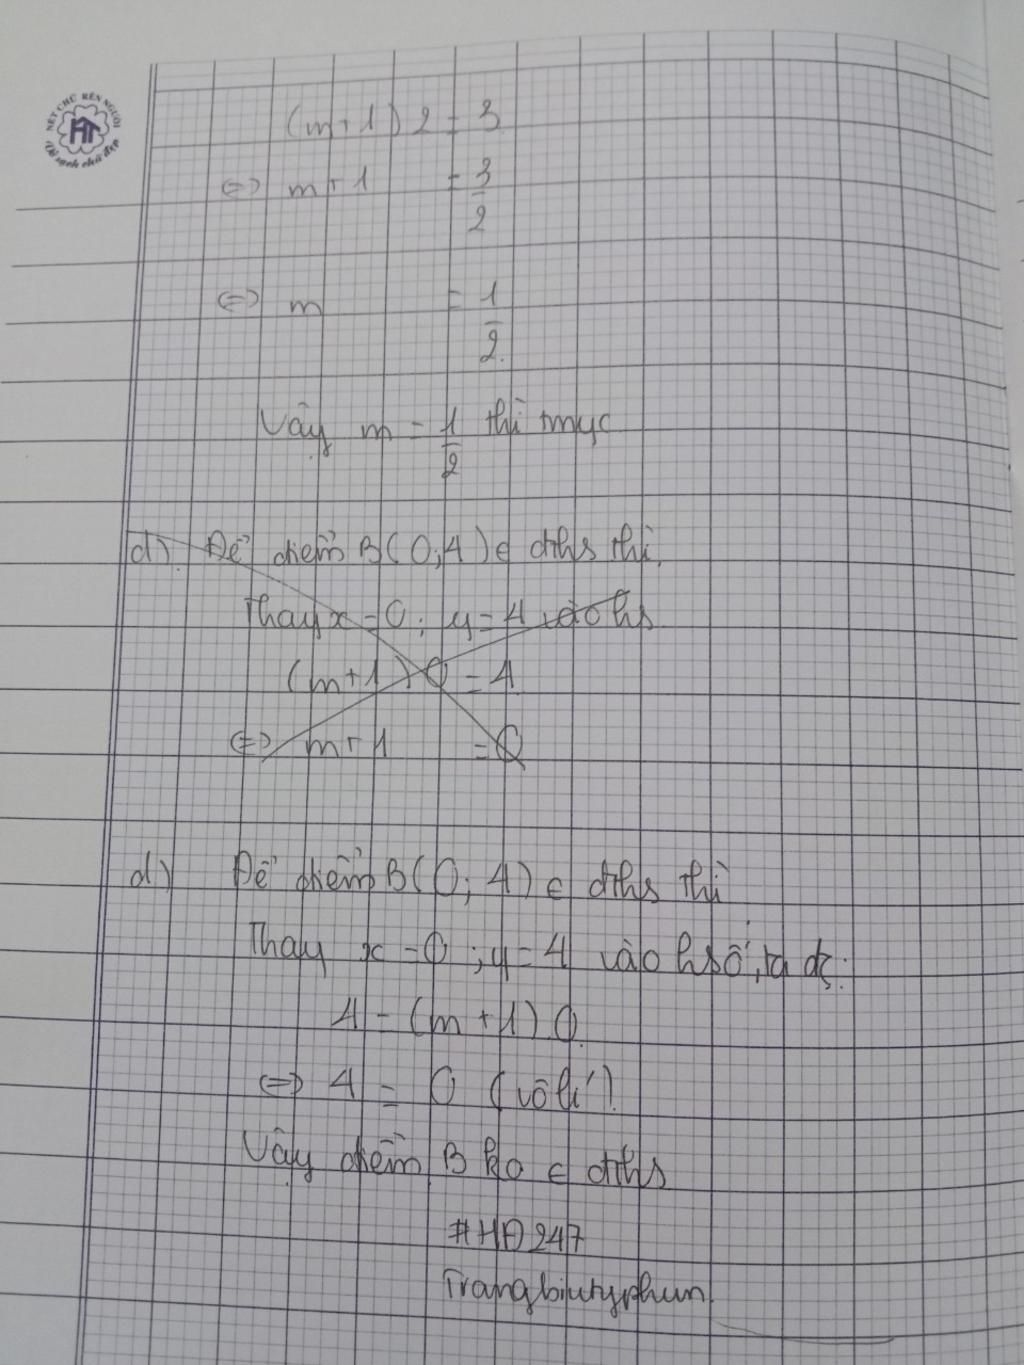 NÉT CHỮ RÈN NGƯỜI
HT
Vở sạch chữ đẹp
(m+1) 2 = 3
<=> m+1 = 3/2
<=> m = 1/2.
Vậy m = 1/2 thì tmyc
d) Để điểm B(0;4) ∈ đths thì
Thay x = 0; y = 4 vào hs
(m+1) 0 = 4
<=> m+1 = 0
d) Để điểm B(0; 4) ∈ đths thì
Thay x = 0; y = 4 vào hsố, ta đc:
4 = (m+1).0
<=> 4 = 0 (vô lí)
Vậy điểm B ko ∈ đths
#HĐ247
Trangbiutyphun